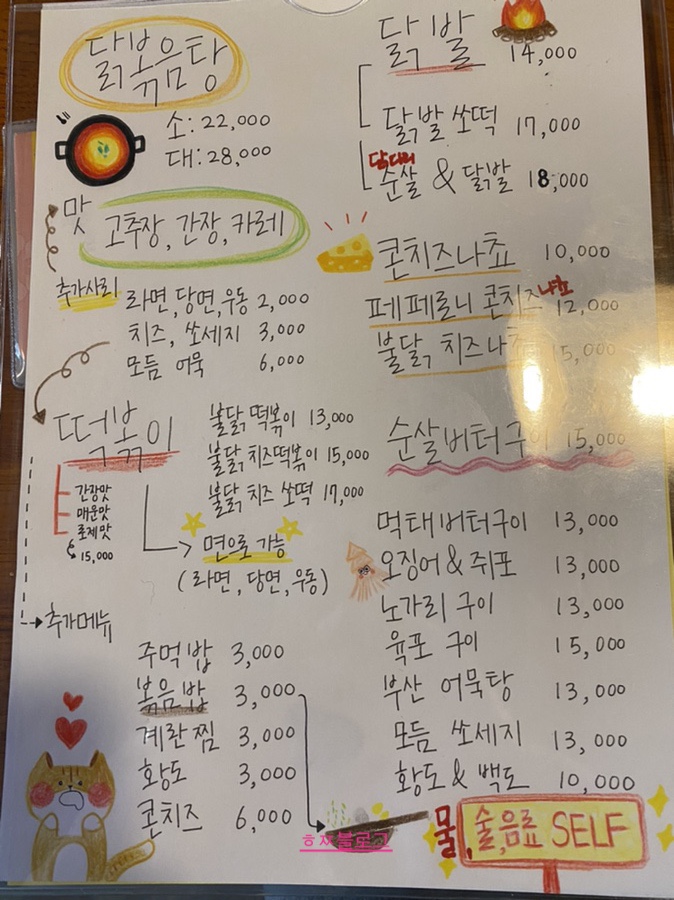 닭볶음탕
소: 22,000
대: 28,000
맛 고추장, 간장, 카레
추가사리 라면, 당면, 우동 2,000
치즈, 쏘세지 3,000
모듬 어묵 6,000
떡볶이
간장맛
매운맛
로제맛
15,000
불닭 떡볶이 13,000
불닭 치즈떡볶이 15,000
불닭 치즈 쏘떡 17,000
면으로 가능
(라면, 당면, 우동)
추가메뉴
주먹밥 3,000
볶음밥 3,000
계란찜 3,000
황도 3,000
콘치즈 6,000
닭발 14,000
닭발 쏘떡 17,000
닭다리
순살 & 닭발 18,000
콘치즈나쵸 10,000
페페로니 콘치즈나쵸 12,000
불닭 치즈나쵸 15,000
순살버터구이 15,000
먹태버터구이 13,000
오징어 & 쥐포 13,000
노가리 구이 13,000
육포 구이 15,000
부산 어묵탕 13,000
모듬 쏘세지 13,000
황도 & 백도 10,000
물, 술, 음료 SELF